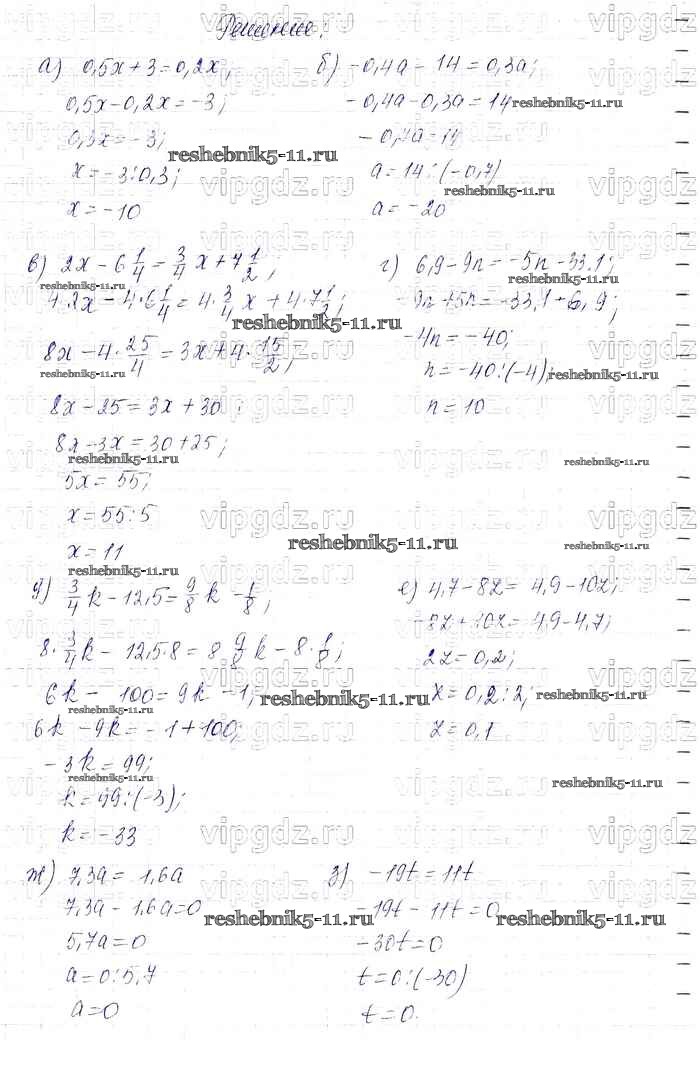 Решение:
а) 0,5x+3=0,2x;
0,5x-0,2x=-3;
0,3x=-3;
x=-3:0,3;
x=-10
б) -0,4a-14=0,3a;
-0,4a-0,3a=14
-0,7a=14
a=14:(-0,7)
a=-20
в) 2x-6 1/4=3/4 x+7 1/2;
4·2x-4·6 1/4=4·3/4 x+4·7 1/2;
8x-4·25/4=3x+4·15/2;
8x-25=3x+30;
8x-3x=30+25;
5x=55;
x=55:5
x=11
г) 6,9-9n=-5n-33,1;
-9n+5n=-33,1-6,9;
-4n=-40;
n=-40:(-4);
n=10
д) 3/4 k-12,5=9/8 k-1/8;
8·3/4 k-12,5·8=8 9/8 k-8·1/8;
6k-100=9k-1;
6k-9k=-1+100;
-3k=99;
k=99:(-3);
k=-33
е) 4,7-8z=4,9-10z;
-8z+10z=4,9-4,7;
2z=0,2;
z=0,2:2;
z=0,1
ж) 7,3a=1,6a
7,3a-1,6a=0
5,7a=0
a=0:5,7
a=0
з) -19t=11t
-19t-11t=0
-30t=0
t=0:(-30)
t=0.
vipgdz.ru
reshebnik5-11.ru